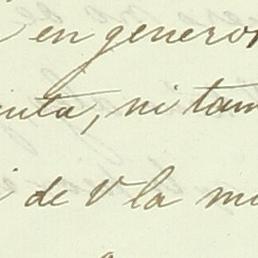 en generos
enta, ni tam
i de V la mi